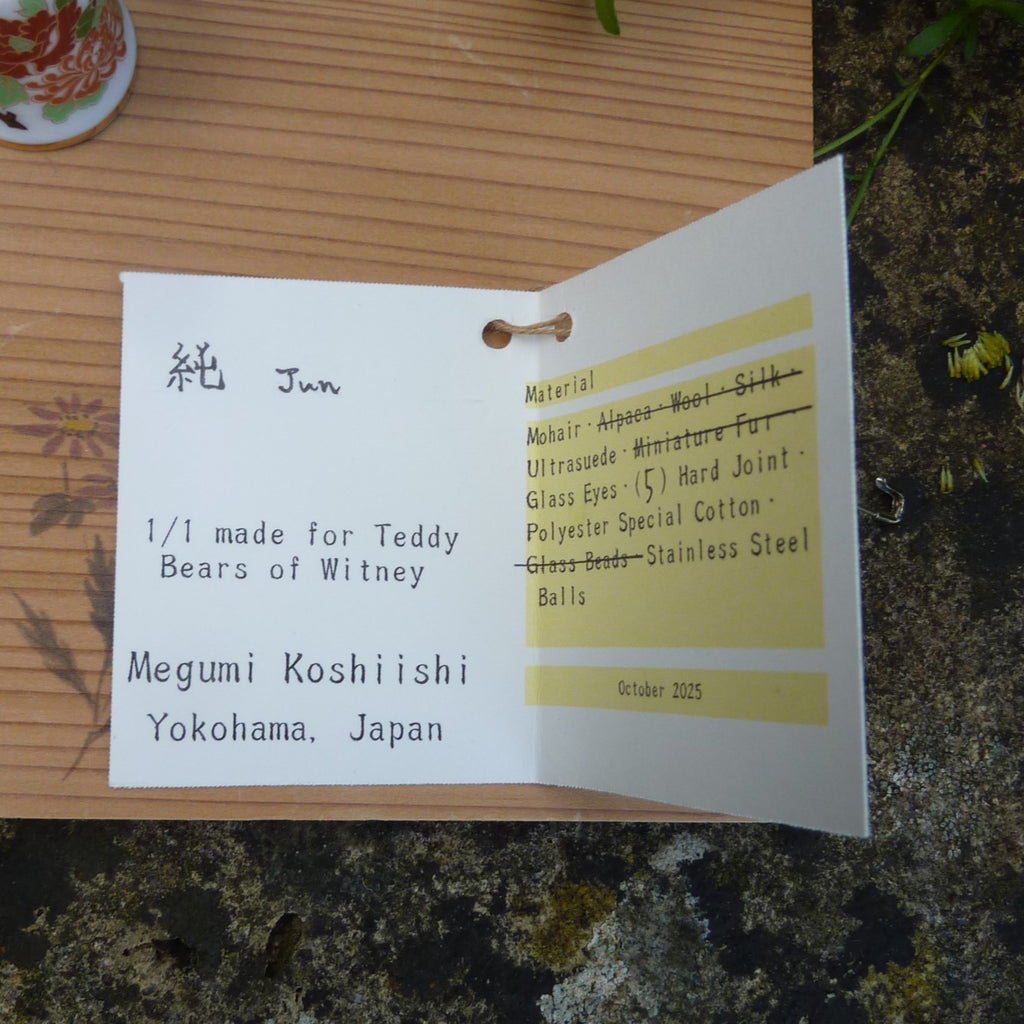 純 Jun
1/1 made for Teddy
Bears of Witney
Megumi Koshiishi
Yokohama, Japan
Material
Mohair · Alpaca · Wool · Silk ·
Ultrasuede · Miniature Fur ·
Glass Eyes · (5) Hard Joint ·
Polyester Special Cotton ·
Glass Beads Stainless Steel
Balls
October 2025